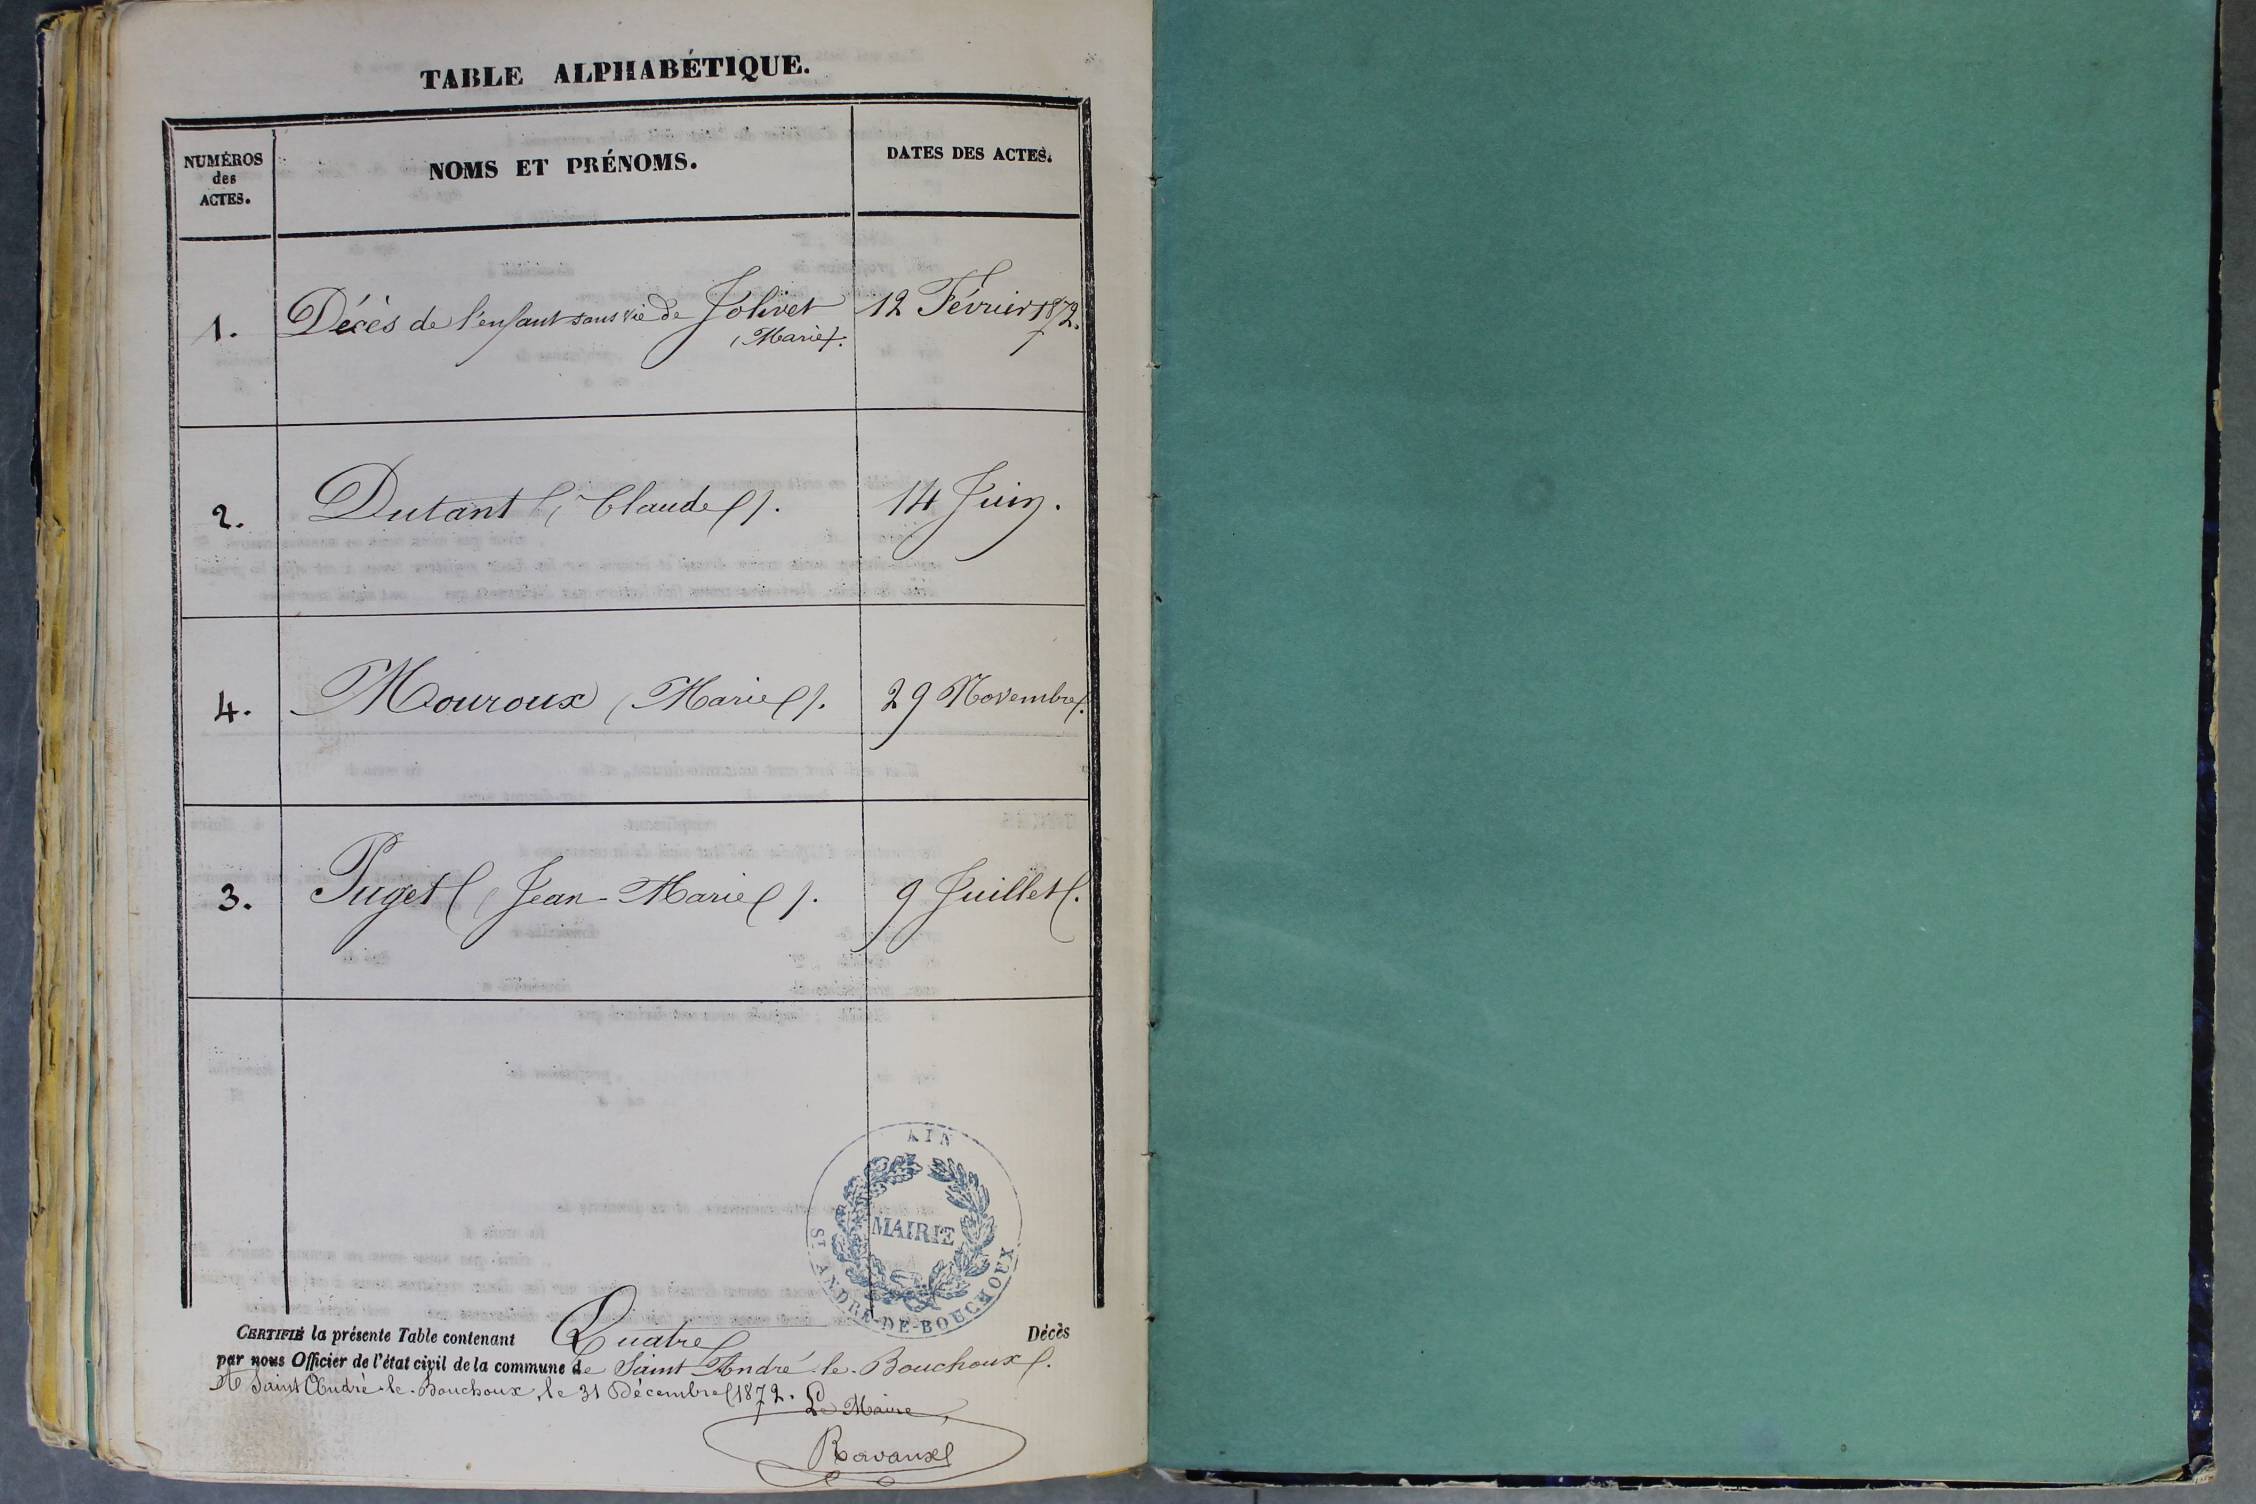 TABLE ALPHABÉTIQUE.
NUMÉROS
des
ACTES.
NOMS ET PRÉNOMS.
DATES DES ACTES.
1. Décès de l'enfant sans vie de Jolivet 12 Février 1872.
(Marie).
2. Dutant (Claude). 14 Juin.
4. Mouroux (Marie). 29 Novembre.
3. Puget (Jean-Marie). 9 Juillet.
AIN
MAIRIE
ST ANDRÉ-DE-BOUCHOUX
CERTIFIÉ la présente Table contenant Quatre Décès
par nous Officier de l'état civil de la commune de Saint André-le-Bouchoux.
A Saint André-le-Bouchoux, le 31 Décembre 1872. Le Maire,